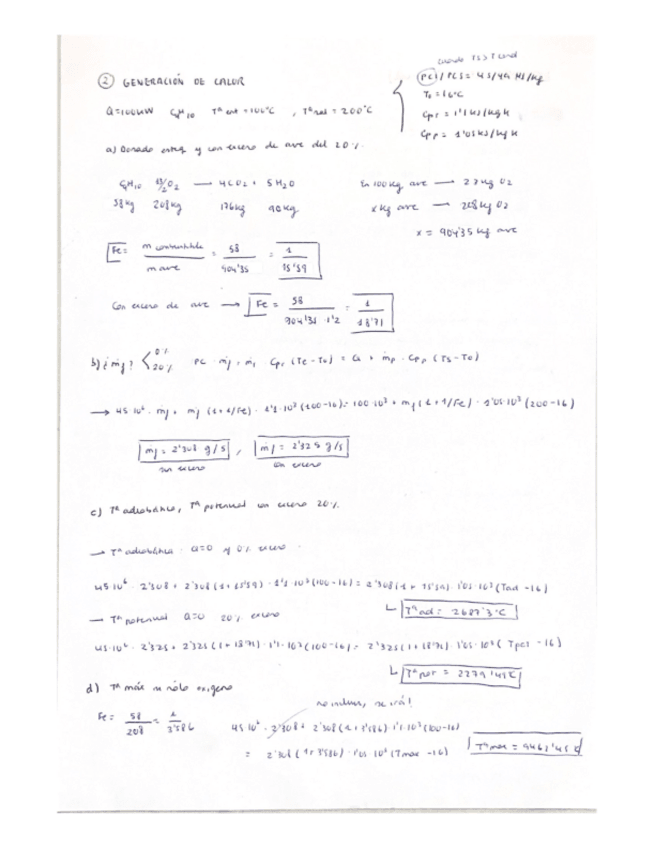 ② GENERACIÓN DE CALOR
Cuando TS > T cond
PCI / PCS = 45/49 MJ/kg
T₀ = 16°C
Cpr = 1'1 kJ/kgK
Cpp = 1'05 kJ/kgK
Q=100kW C₄H₁₀ Tª ent = 100°C , Tª sal = 200°C
a) Dosado esteq y con exceso de aire del 20%.
C₄H₁₀ 13/2 O₂ → 4CO₂ + 5H₂O
58kg 208kg 176kg 90kg
En 100kg aire → 23kg O₂
x kg aire → 208kg O₂
x = 904'35 kg aire
Fe = m combustible / m aire = 58 / 904'35 = 1 / 15'59
Con exceso de aire → Fe = 58 / 904'35 · 1'2 = 1 / 18'71
b) ¿ṁf? < 0% 20% PC · ṁf + ṁr Cpr (Te - T₀) = Q + ṁp · Cpp (Ts - T₀)
→ 45·10⁶ · ṁf + ṁf (1+1/Fe) · 1'1·10³ (100-16) = 100·10³ + ṁf (1+1/Fe) · 1'05·10³ (200-16)
ṁf = 2'308 g/s , ṁf = 2'325 g/s
sin exceso con exceso
c) Tª adiabática, Tª potencial con exceso 20%.
→ Tª adiabática Q=0 y 0% exceso
45·10⁶ · 2'308 + 2'308 (1+15'59) · 1'1·10³ (100-16) = 2'308 (1+15'59) · 1'05·10³ (Tad - 16)
Tª ad = 2687'3°C
→ Tª potencial Q=0 20% exceso
45·10⁶ · 2'325 + 2'325 (1+18'71) · 1'1·10³ (100-16) = 2'325 (1+18'71) · 1'05·10³ (Tpot - 16)
d) Tª máx si sólo oxígeno
no influye, se irá!
Fe = 58 / 208 = 1 / 3'586
45·10⁶ · 2'308 + 2'308 (1+3'586) · 1'1·10³ (100-16)
= 2'308 (1+3'586) · 1'05·10³ (Tmax - 16)